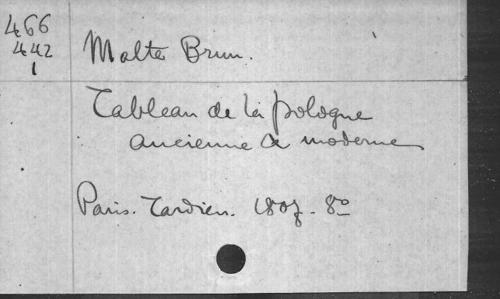 466
442
1
Malte Brun.
Tableau de la pologne
ancienne & moderne
Paris. Tardieu. 1807. 8º